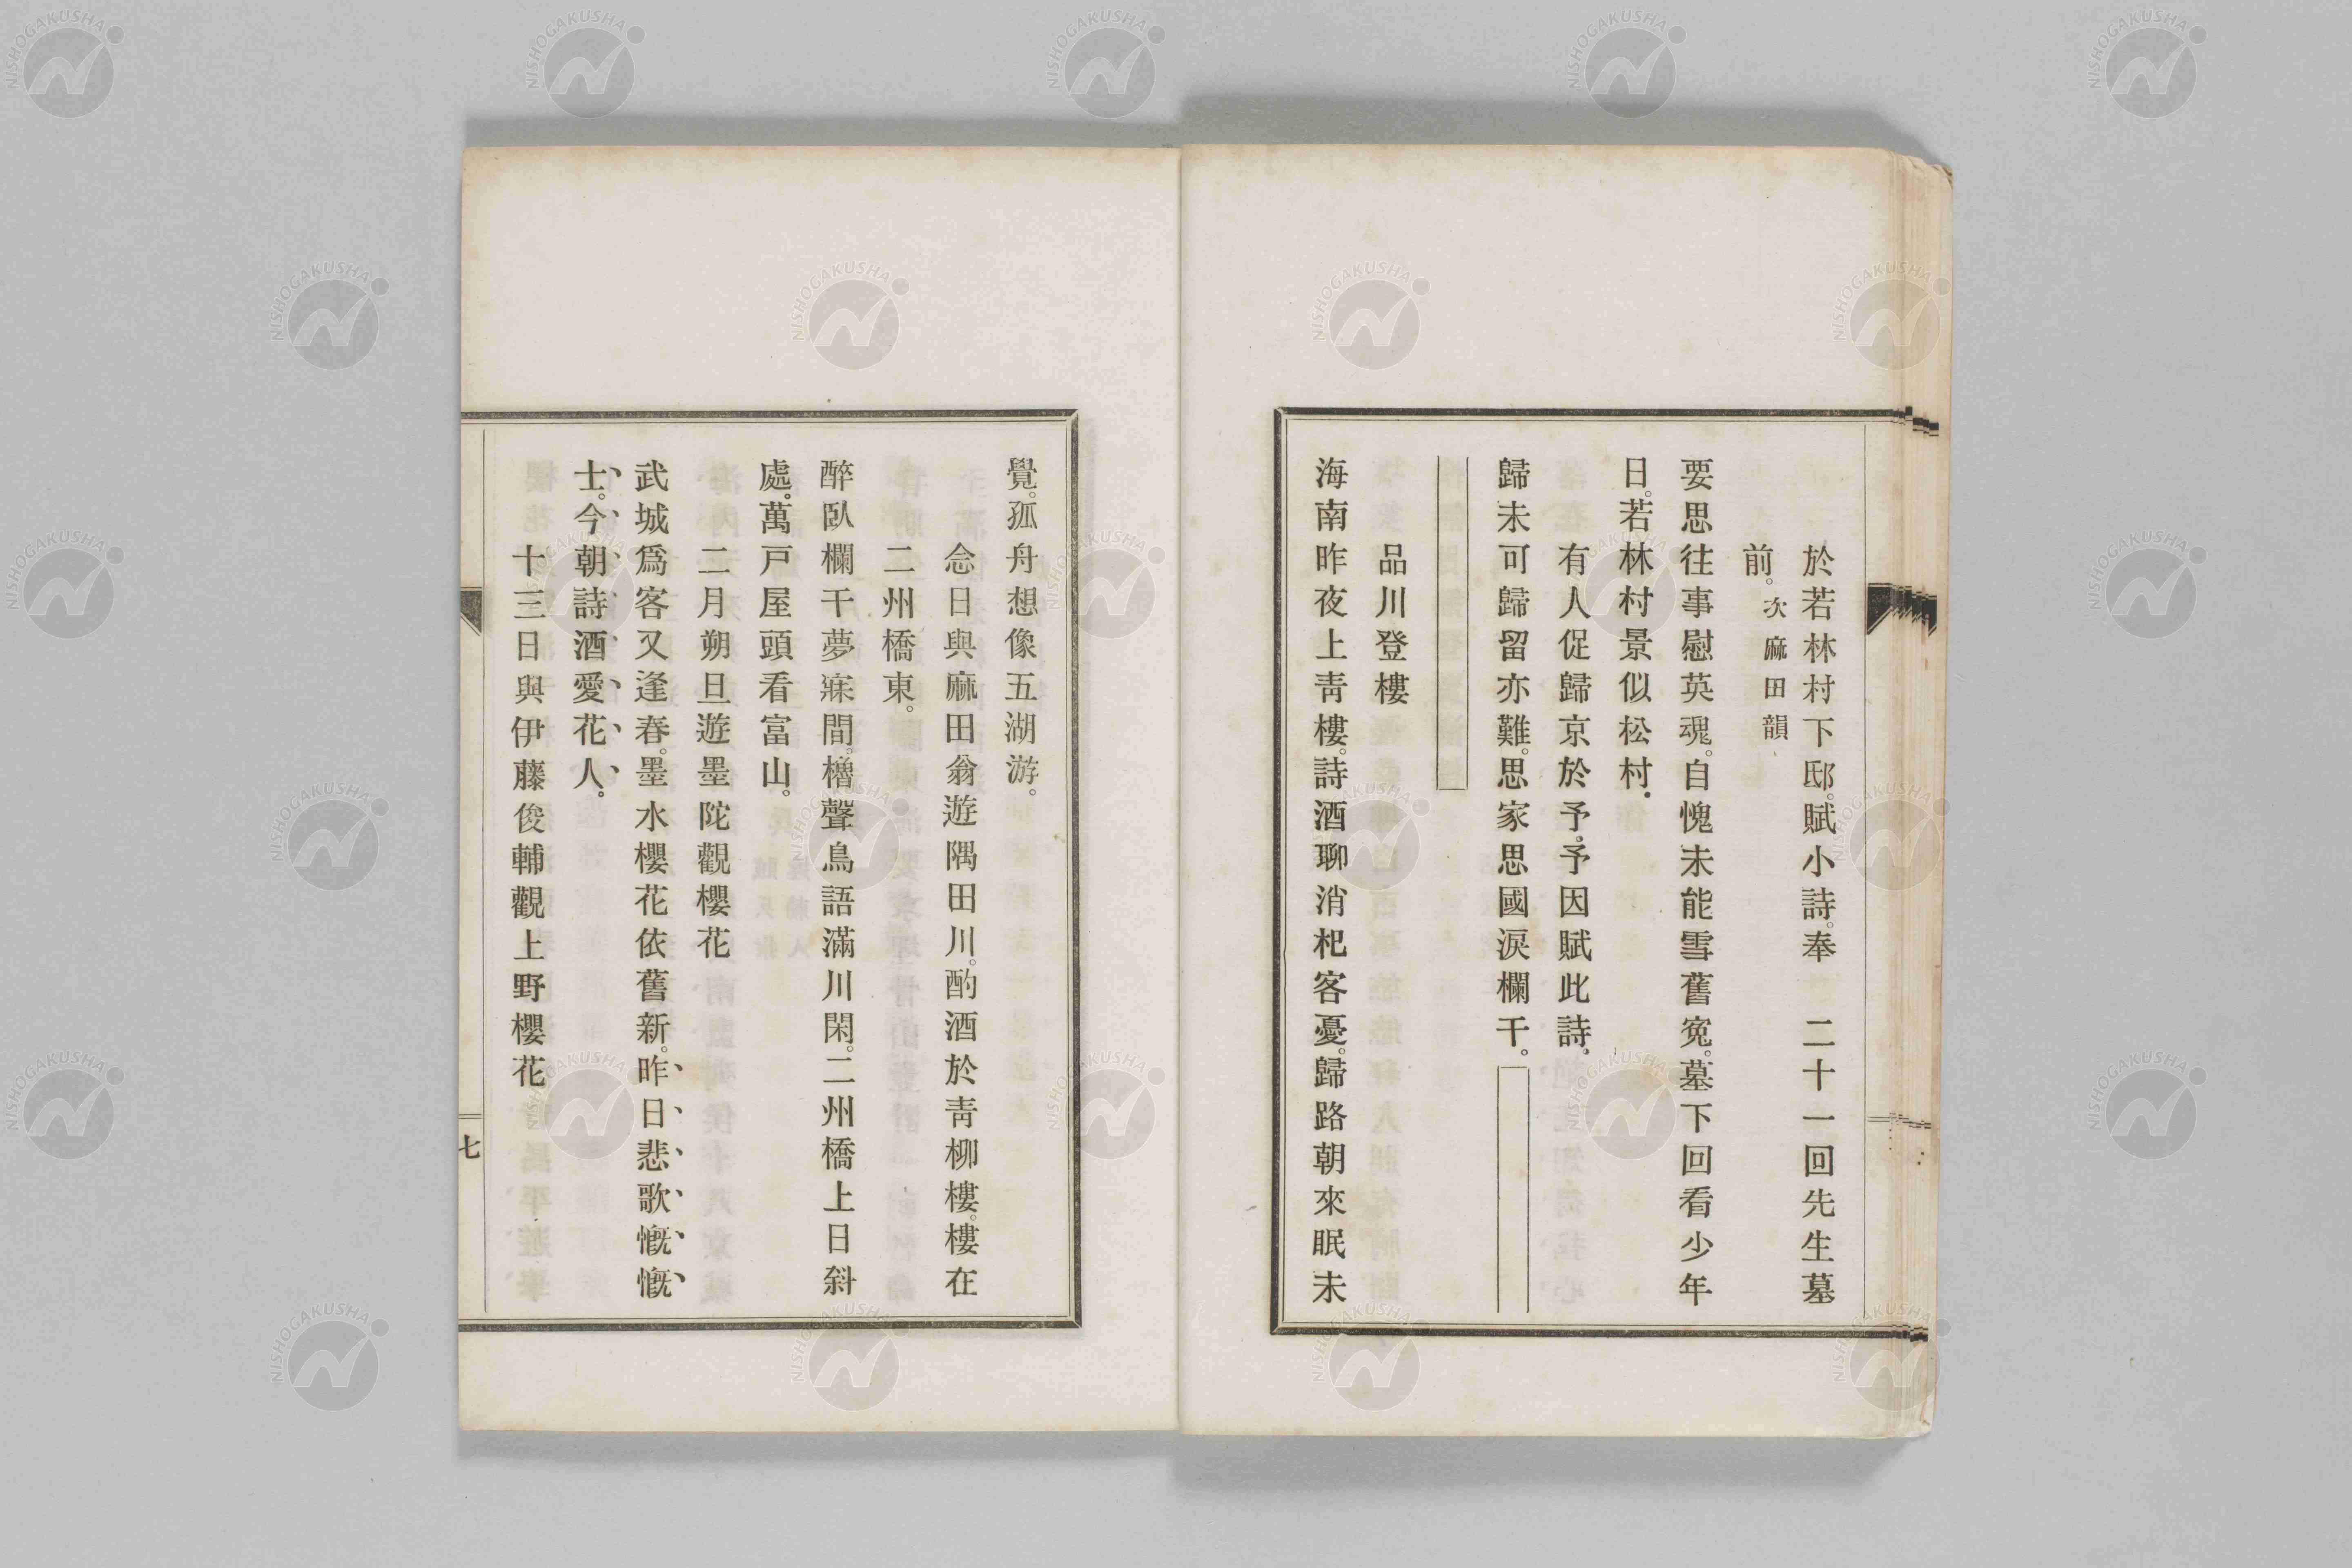 於若林村下邸。賦小詩。奉　二十一回先生墓
前。次麻田韻
要思往事慰英魂。自愧未能雪舊寃。墓下回看少年
日。若林村景似松村.
有人促歸京於予。予因賦此詩.
歸未可歸留亦難。思家思國淚欄干。
品川登樓
海南昨夜上靑樓。詩酒聊消杞客憂。歸路朝來眠未
覺。孤舟想像五湖游。
念日與麻田翁遊隅田川。酌酒於靑柳樓。樓在
二州橋東。
醉臥欄干夢寐間。櫓聲鳥語滿川閑。二州橋上日斜
處。萬戸屋頭看富山。
二月朔旦遊墨陀觀櫻花
武城爲客又逢春。墨水櫻花依舊新。昨日悲歌慨慨
士。今朝詩酒愛花人。
十三日與伊藤俊輔觀上野櫻花
七
NISHOGAKUSHA